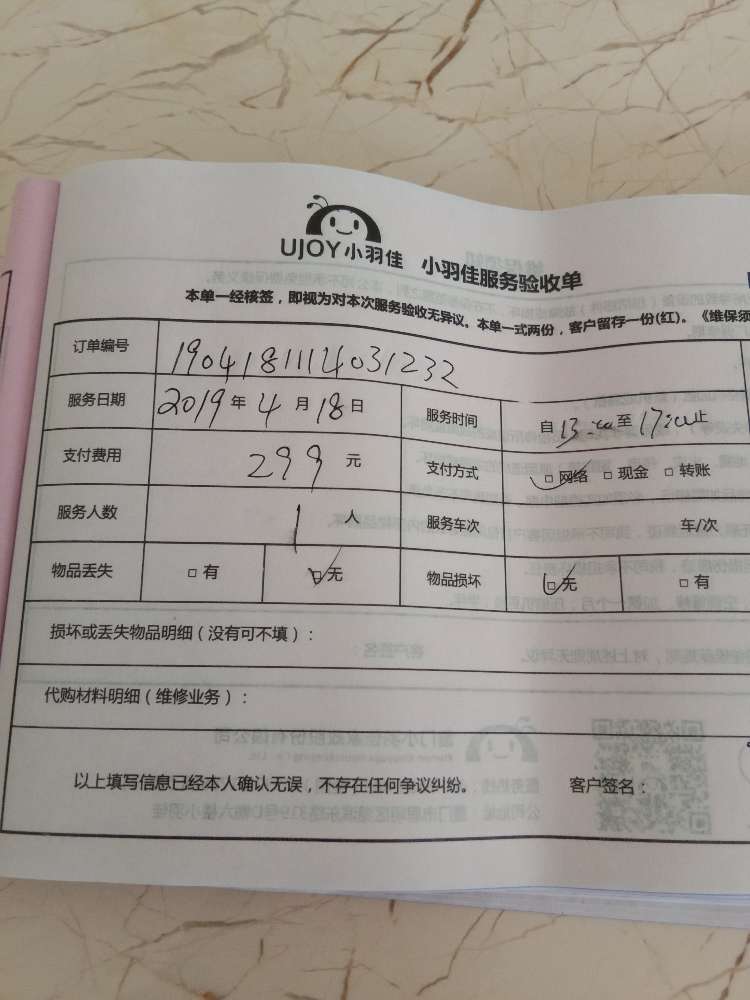 UJOY小羽佳 小羽佳服务验收单
本单一经核签，即视为对本次服务验收无异议。本单一式两份，客户留存一份(红)。《维保须
订单编号 1904181114031232
服务日期 2019年4月18日 服务时间 自13:00至17:00止
支付费用 299元 支付方式 □网络 □现金 □转账
服务人数 1人 服务车次 年/次
物品丢失 □有 □无 物品损坏 □无 □有
损坏或丢失物品明细（没有可不填）：
代购材料明细（维修业务）：
以上填写信息已经本人确认无误，不存在任何争议纠纷。 客户签名：